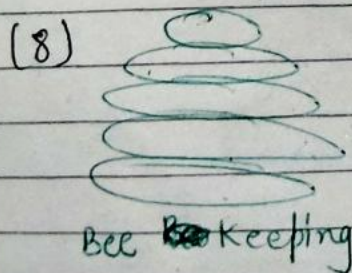 (8)
Bee Keeping